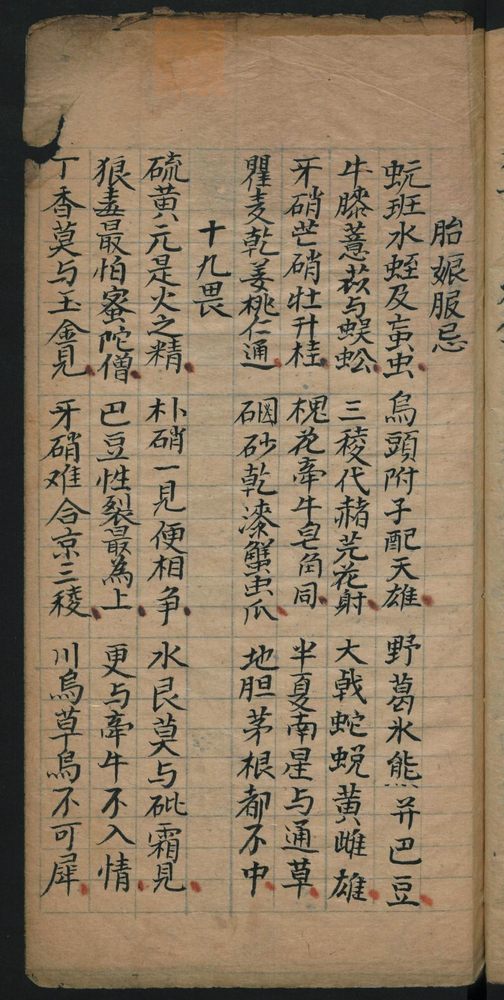 胎娠服忌
蚖班水蛭及䖟虫 烏頭附子配天雄 野葛水熊并巴豆
牛膝薏苡与蜈蚣 三稜代赭芫花射 大戟蛇蜕黄雌雄
牙硝芒硝牡丹桂 槐花牽牛皂角同 半夏南星与通草
瞿麦乾姜桃仁通 硇砂乾漆蟹虫爪 地胆茅根都不中
十九畏
硫黄元是火之精 朴硝一見便相争 水艮莫与砒霜見
狼毒最怕蜜陀僧 巴豆性裂最為上 更与牽牛不入情
丁香莫与玉金見 牙硝难合京三稜 川烏草烏不可犀